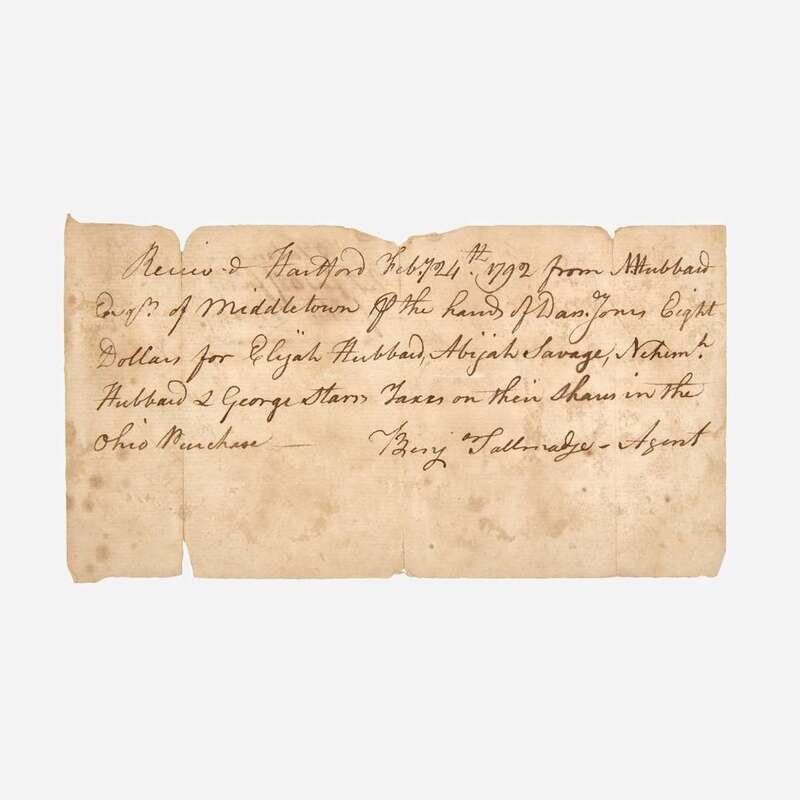 Receiv'd Hartford Feby 24th. 1792 from N Hubbard
Esqr. of Middletown the hands of Danl. Jones Eight
Dollars for Elijah Hubbard, Abijah Savage, Nehemh.
Hubbard & George Starrs Taxes on their Shares in the
Ohio Purchase — Benjn Tallmadge - Agent